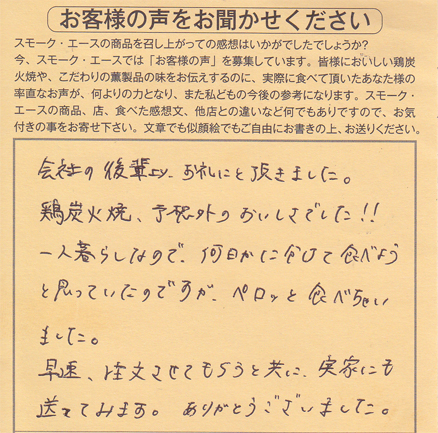 お客様の声をお聞かせください
スモーク・エースの商品を召し上がっての感想はいかがでしたでしょうか?
今、スモーク・エースでは「お客様の声」を募集しています。皆様においしい鶏炭
火焼や、こだわりの薫製品の味をお伝えするのに、実際に食べて頂いたあなた様の
率直なお声が、何よりの力となり、また私どもの今後の参考になります。スモーク・
エースの商品、店、食べた感想文、他店との違いなど何でもありですので、お気
付きの事をお寄せ下さい。文章でも似顔絵でもご自由にお書きの上、お送りください。
会社の後輩より、お礼にと頂きました。
鶏炭火焼、予想外のおいしさでした!!
一人暮らしなので、何日かに分けて食べよう
と思っていたのですが、ペロッと食べちゃい
ました。
早速、注文させてもらうと共に、実家にも
送ってみます。ありがとうございました。